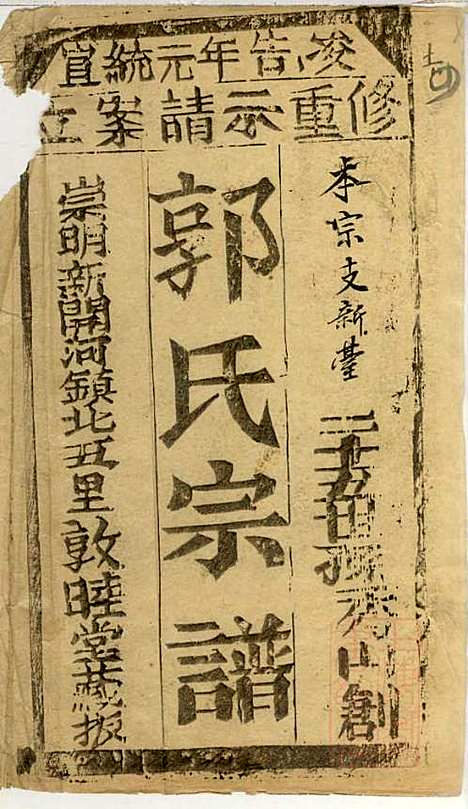 宣統元年告竣
修重示請案立
本宗支新臺
二十五世孫秀山創
郭氏宗譜
崇明新開河鎮北五里敦睦堂藏板